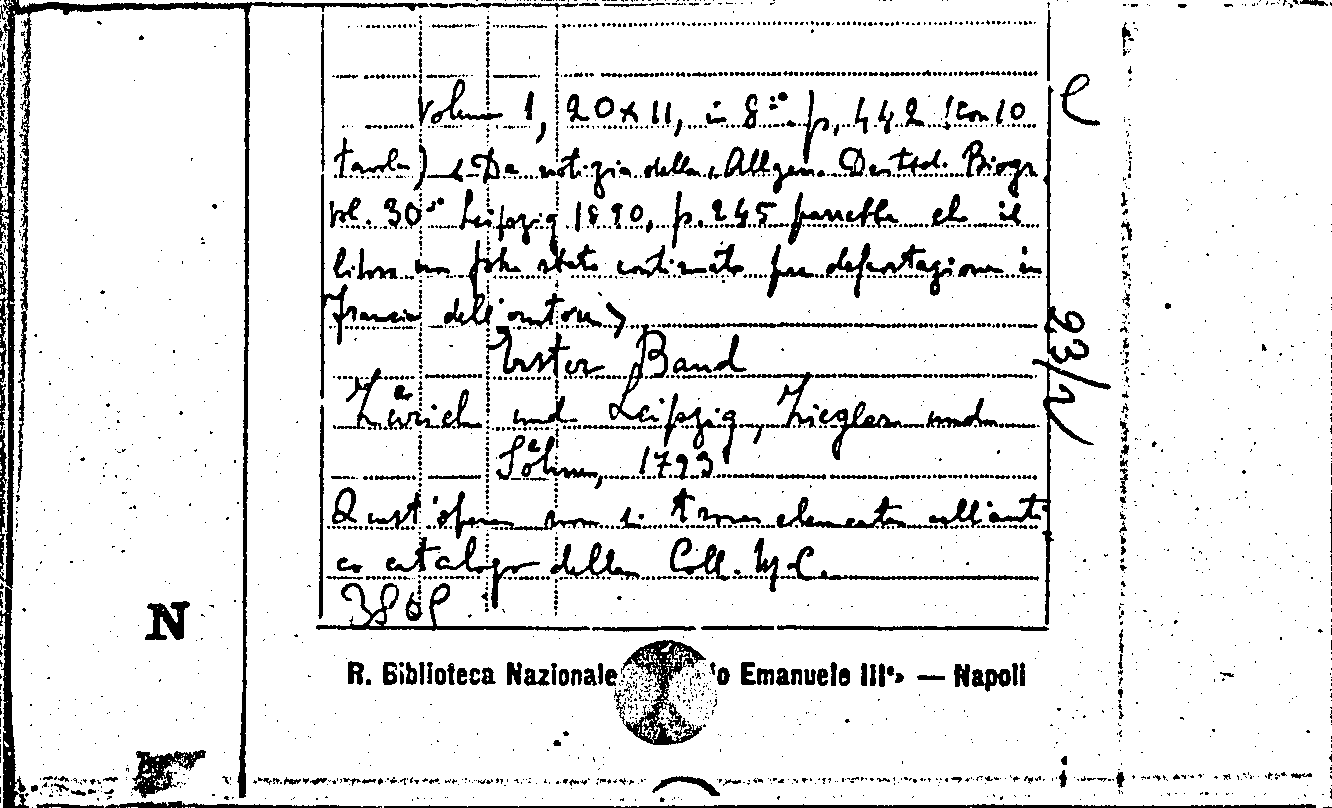 Volume 1, 20x11, in 8:° p, 442 (con 10
tavole) Da notizia della Allgem. Deutsch. Biogr.
vol. 30:° Leipzig 1890, p. 245 parrebbe che il
libro non fosse stato continuato per deportazione in
Francia dell'autore
Erster Band
Zürich und Leipzig, Ziegler und
Söhne, 1793
Quest'opera non si trova elencata nell'anti-
co catalogo della Coll. M-C.
38
R. Biblioteca Nazionale o Emanuele III°» — Napoli
N
23/